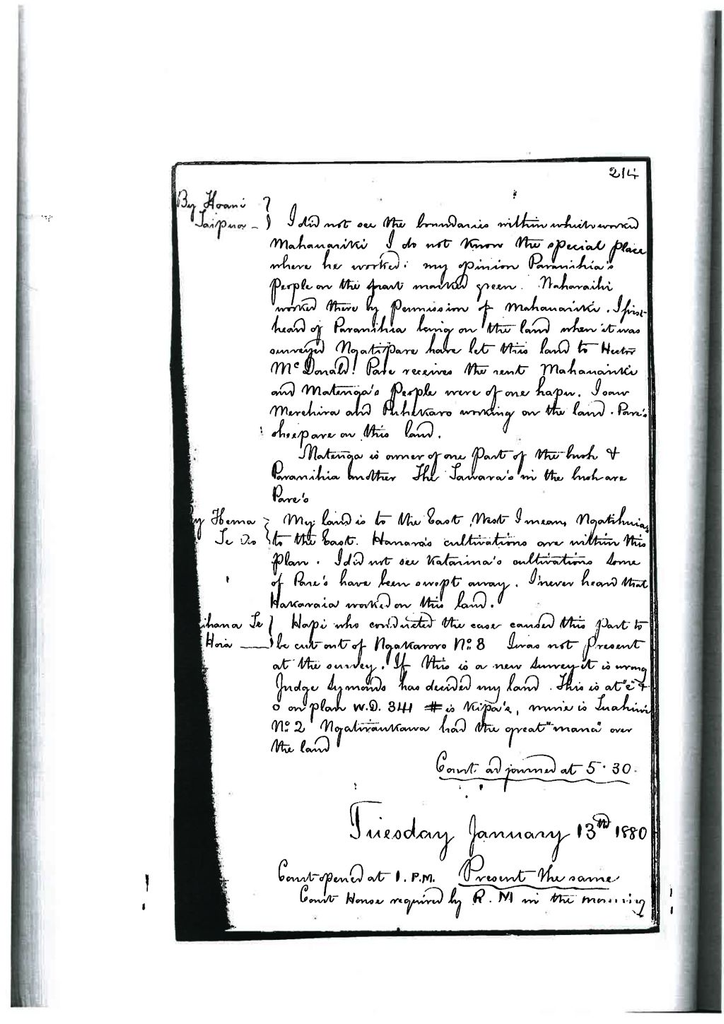 214
By Hoani Taipua — } I did not see the boundaries within which worked
Mahauariki I do not know the special place
where he worked: my opinion Paranihia's
People on the part marked green. Wharaihi
worked there by Permission of Mahauariki. I first
heard of Paranihia being on the land when it was
surveyed Ngatipare have let this land to Hector
McDonald! Pare receives the rent Mahauariki
and Matenga's People were of one hapu. I saw
Merehira and Puhekaro working on the land. Pare's
sheep are on this land.
Matenga is owner of one part of the bush &
Paranihia another The Tawara's in the bush are
Pare's
By Hema Te Ao } My land is to the East, West I mean, Ngatihuia
to the East. Hanara's cultivations are within this
plan. I did not see Katarina's cultivations some
of Pare's have been swept away. I never heard that
Hakaraia worked on this land.
ihana Te Hoia — } Hapi who conducted the case caused this part to
be cut out of Ngakaroro No. 8 I was not present
at the survey. If this is a new survey it is wrong
Judge Symonds has decided my land. This is at "c" &
o on plan W.D. 344 # is Kipa's, mine is Tuahiwi
No. 2 Ngatiraukawa had the great "mana" over
the land
Court adjourned at 5.30.
Tuesday January 13th 1880
Court opened at 1. P.M. Present the same
Court House required by R. M in the morning